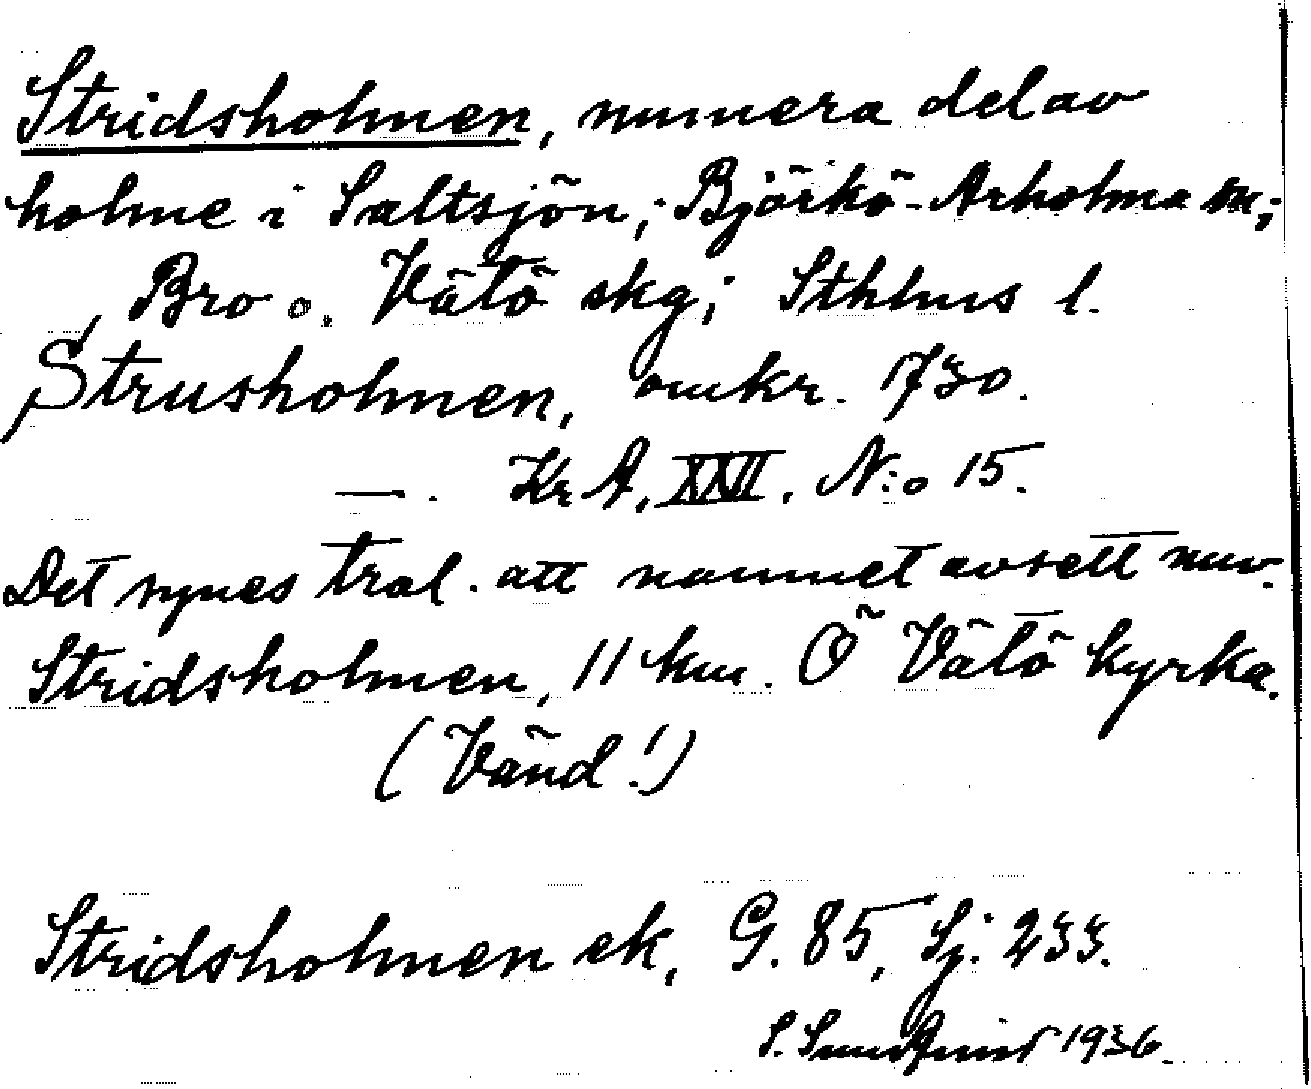 Stridsholmen, numera del av
holme i Saltsjön; Björkö-Arholma sn;
Bro o. Vätö skg; Sthlms l.
Strusholmen, omkr. 1730.
—. Kr A, XXII. N:o 15.
Det synes trol. att namnet avsett nuv.
Stridsholmen, 11 km. Ö Vätö kyrka.
(Vänd!)
Stridsholmen ek, G. 85, Sj: 233.
S. Sundquist 1936.